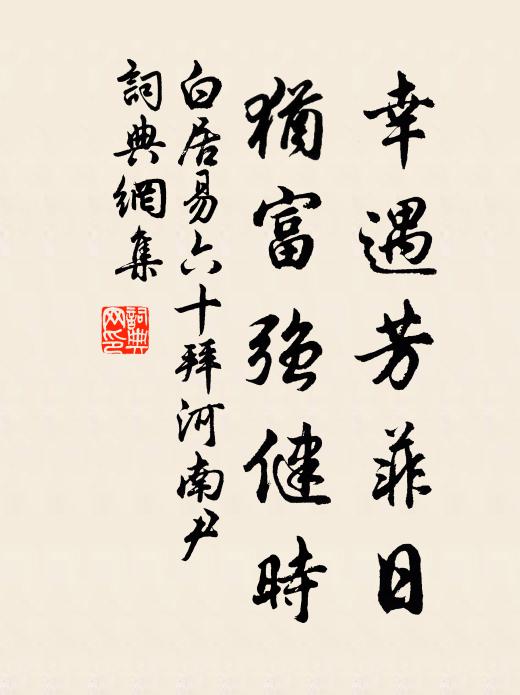 幸遇芳菲日
猶富強健時
白居易六十拜河南尹
詞典網集
詞典网印